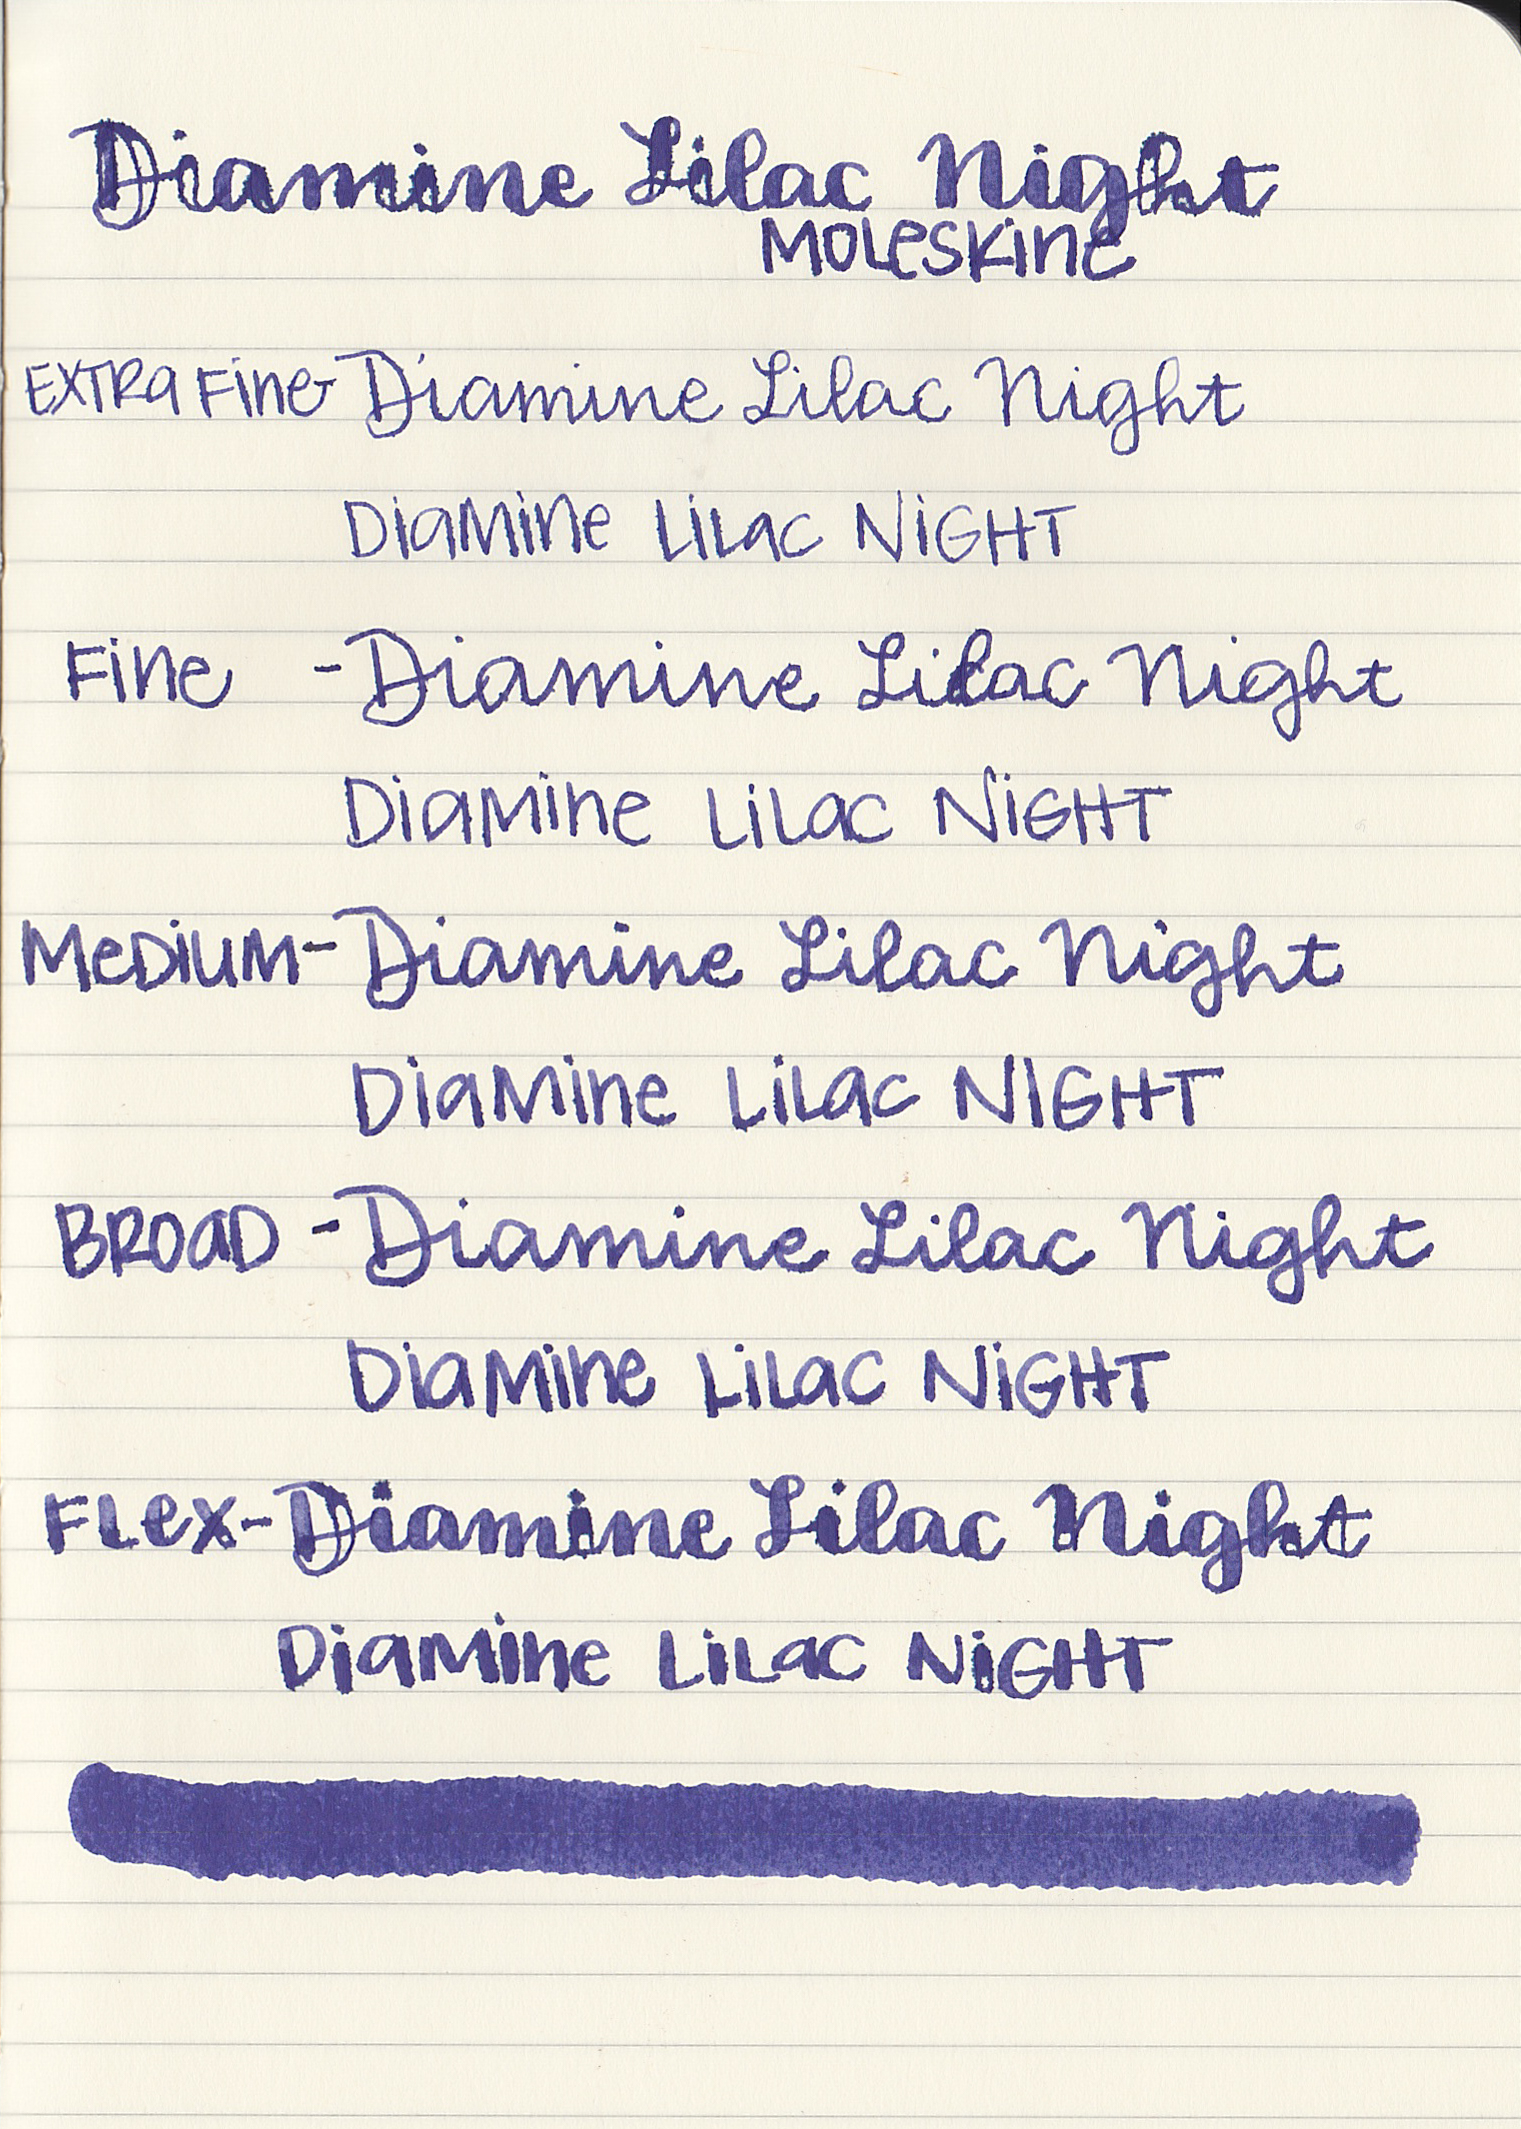 Diamine Lilac Night
MOLeSKine
EXTRa Fine- Diamine Lilac Night
DiaMine LiLac NiGHT
Fine - Diamine Lilac Night
DiaMine LiLac NiGHT
MeDiUM- Diamine Lilac Night
DiaMine LiLac NIGHT
BROaD - Diamine Lilac Night
DiaMine LiLac NiGHT
FLex- Diamine Lilac Night
DiaMine LiLac NiGHT